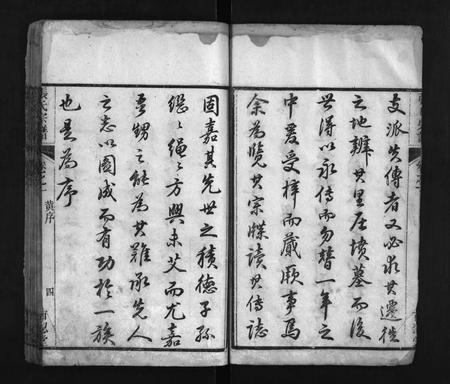 支派失傳者又必求其遷徙
之地辨其里居墳墓而後
世得以永傳而勿替一年之
中爰受梓而蕆厥事焉
余為覽其宗牒讀其傳誌
固嘉其先世之積德子孫
繼〻繩〻方興未艾而尤嘉
吾甥之能為其難承先人
之志以圖成而有功於一族
也是為序
氏宗譜
黃序
四